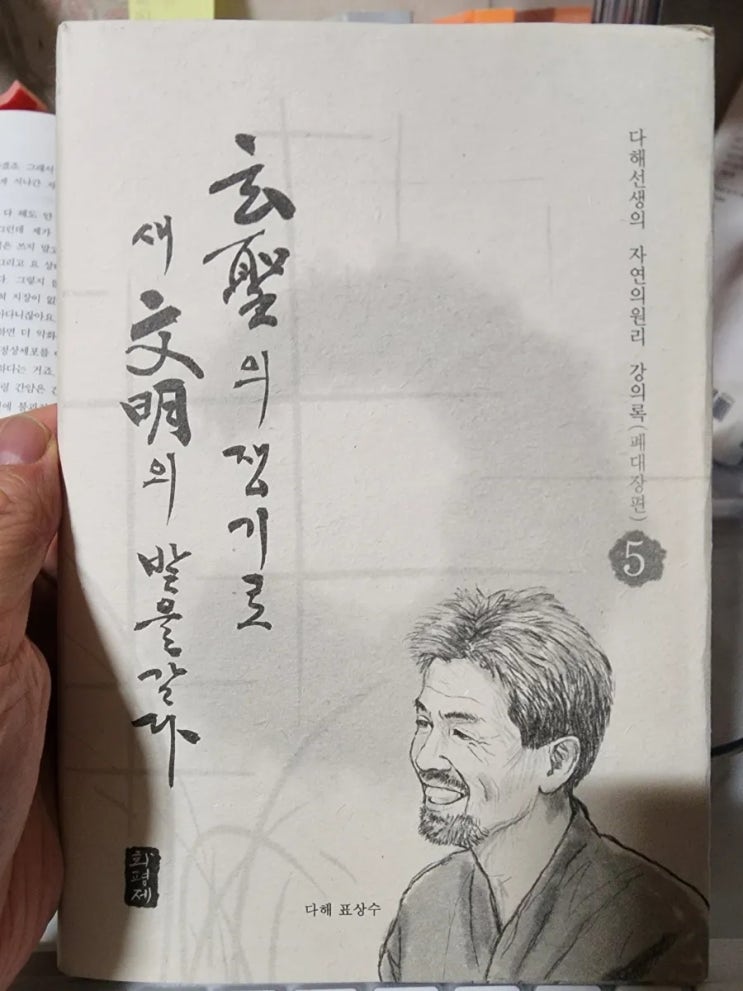 다해선생의 자연의원리 강의록(폐대장편)
5
玄聖의 쟁기로
새 文明의 밭을갈다
화평제
다해 표상수